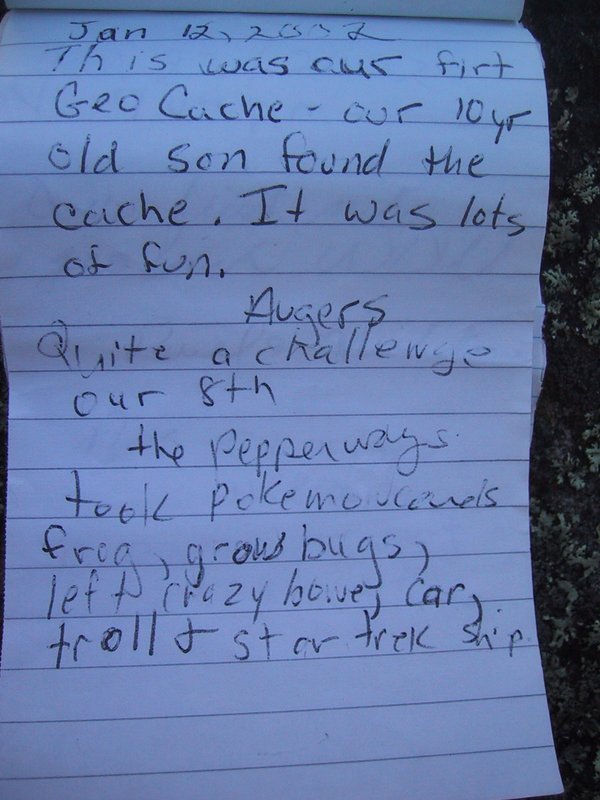 Jan 12, 2002
This was our firt
Geo Cache - our 10yr
old son found the
cache. It was lots
of fun.
Augers
Quite a challenge
our 8th
the Pepperways
took Pokemon cards
frog, grow bugs,
left crazy bone, car,
troll & star trek ship.